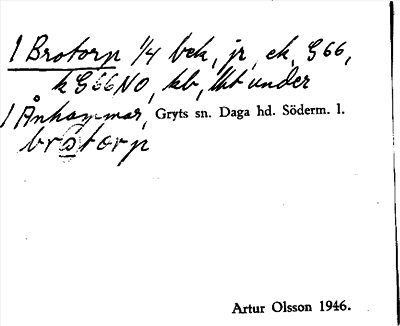 1 Brotorp 1/4 bek, jr, ek, G66,
k G66NO, kb, lht under
1 Ånhammar, Gryts sn. Daga hd. Söderm. l.
brotorp
Artur Olsson 1946.